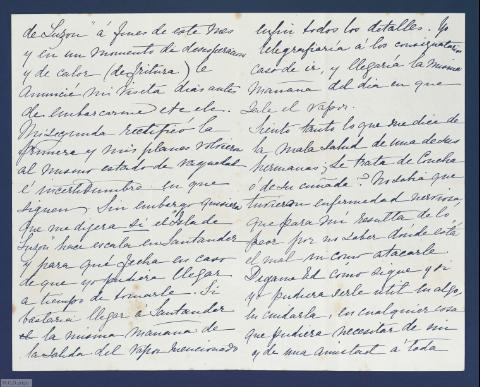 de Luzon" á fines de este mes
y en un momento de desesperacion
y de calor (de fritura) le
Anuncié mi visita dias antes
de embarcarme etc etc.
Mi segunda rectificó la
primera y mis planes volvieron
al mismo estado de vaguedad
é incertidumbre en que
siguen. Sin embargo quisiera
que me dijera si el Isla de
Luzon hace escala en Santander
y para qué fecha en caso
de que yo pudiera llegar
a tiempo de tomarle. Si
bastaria llegar a Santander
la misma mañana de
la salida del vapor mencionado
en fin todos los detalles. Yo
telegrafiaria á los consignatarios
caso de ir, y llegaria la misma
mañana del dia en que
sale el vapor.
Siento tanto lo que me dice de
la mala salud de una de sus
hermanas; Se trata de Concha
o de su cuñada? No sabia que
tuvieran enfermedad nerviosa,
que para mi resulta de lo
peor por no saber donde está
el mal ni como atacarle
Digame Ud como sigue y si
yo pudiera serle util en algo,
en cuidarla, en cualquier cosa
que pudiera necesitar de mi
y de una amistad a toda